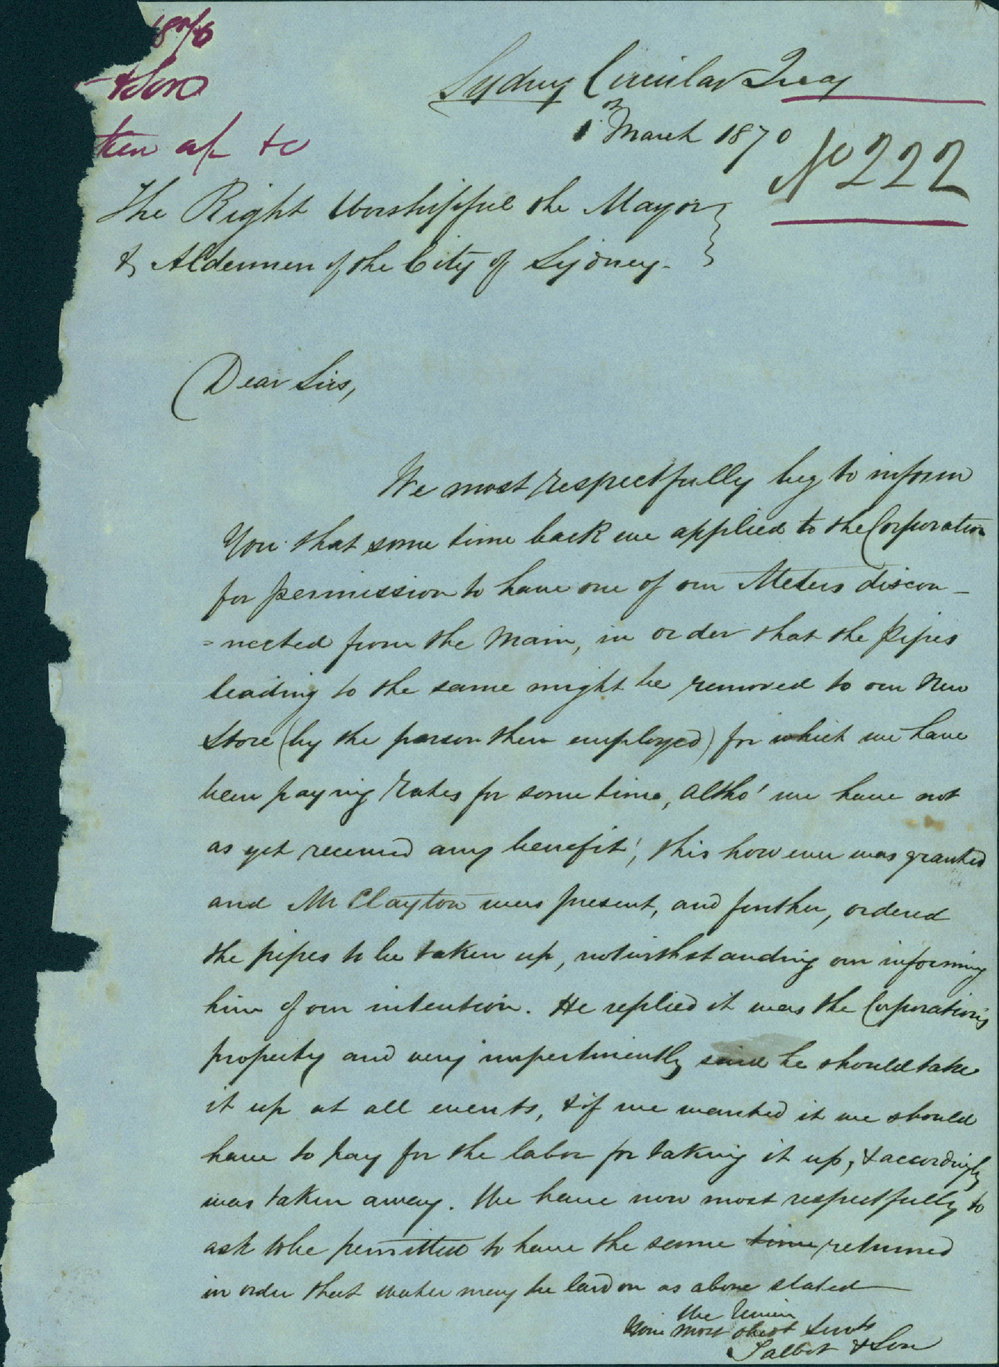 1870
& Son
up &c
Sydney Circular Quay
1st March 1870
No 222
The Right Worshipful the Mayor
& Aldermen of the City of Sydney.
Dear Sirs,
We most respectfully beg to inform
You that some time back we applied to the Corporation
for permission to have one of our Meters discon-
-nected from the Main, in order that the Pipes
leading to the same might be removed to our New
Store (by the person then employed) for which we have
been paying rates for some time, altho' we have not
as yet received any benefit!, this however was granted
and Mr Clayton was present, and further, ordered
the pipes to be taken up, notwithstanding our informing
him of our intention. He replied it was the Corporation's
property and very impertinently said he should take
it up at all events, & if we wanted it we should
have to pay for the labor for taking it up, & accordingly
was taken away. We have now most respectfully to
ask to be permitted to have the same time returned
in order that water may be laid on as above stated
We Remain
Your most obedt Servts
Talbot & Son